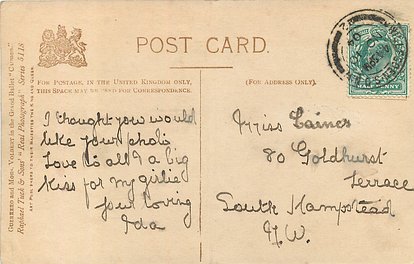 POST CARD.
FOR POSTAGE, IN THE UNITED KINGDOM ONLY,
THIS SPACE MAY BE USED FOR CORRESPONDENCE.
(FOR ADDRESS ONLY.)
I thought you would
like your photo
Love to all & a big
Kiss for my girlie
your loving
Ida
Miss Caines
80 Goldhurst
Terrace
South Hampstead
N.W.
HALFPENNY
Raphael Tuck & Sons' "Real Photograph" Series 5118
ART PUBLISHERS TO THEIR MAJESTIES THE KING AND QUEEN